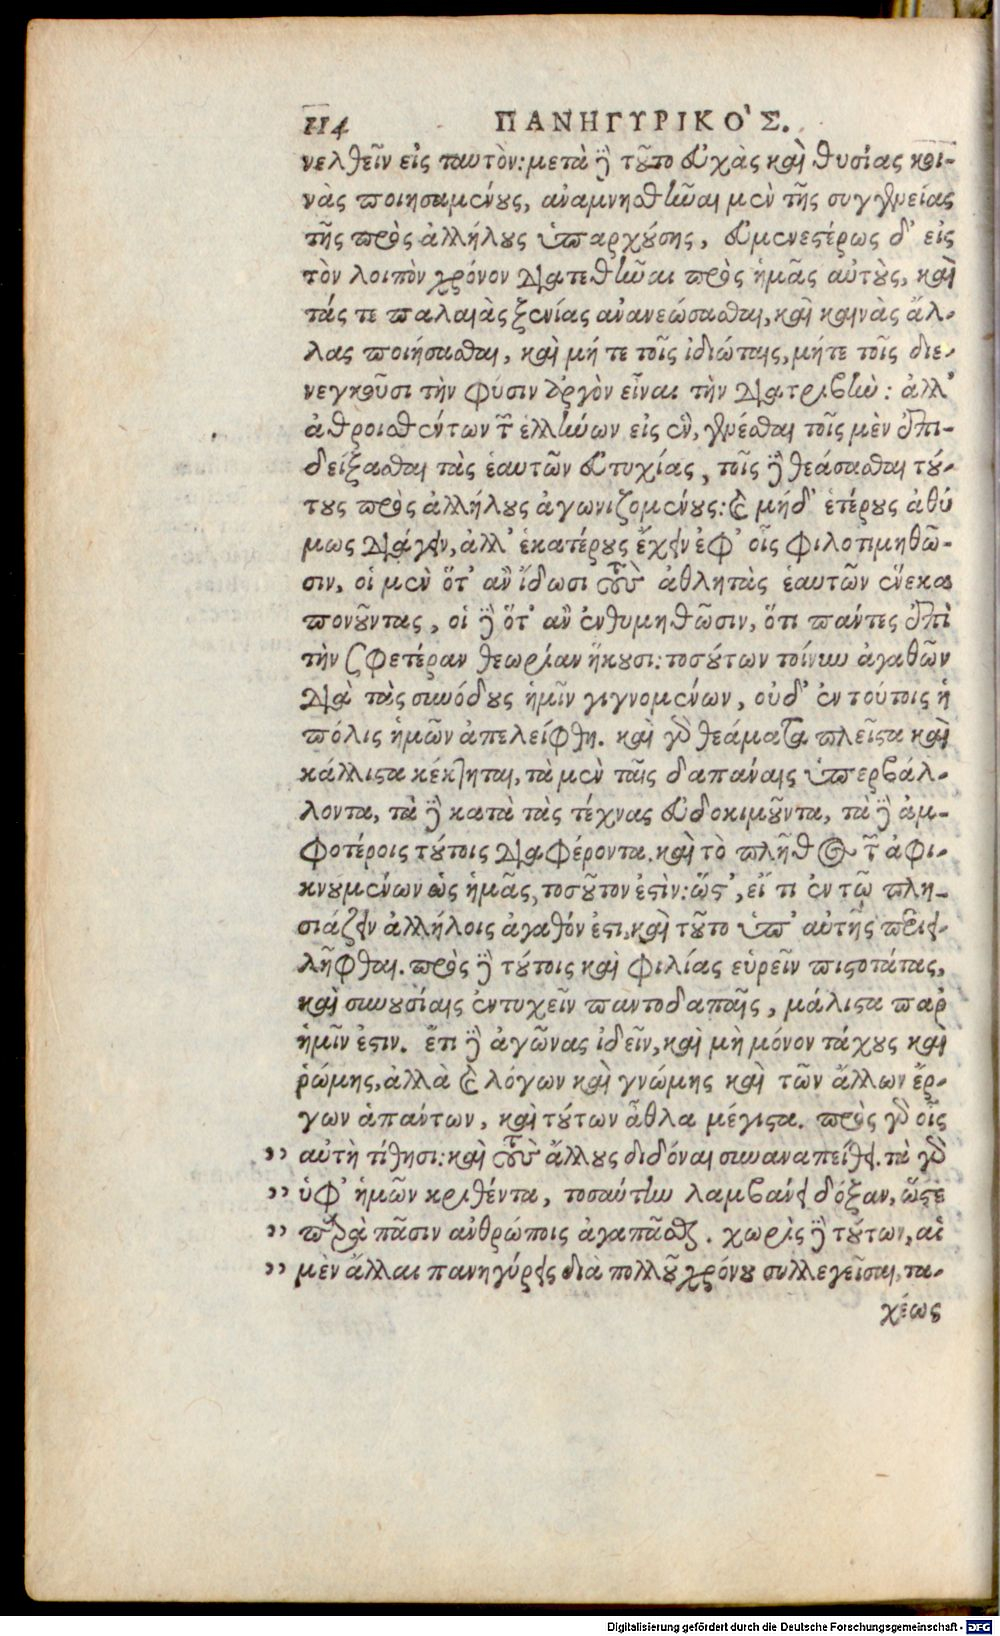 114 ΠΑΝΗΓΥΡΙΚΟ'Σ.
νελθεῖν εἰς ταυτὸν: μετὰ δὲ τοῦτο εὐχὰς καὶ θυσίας κοι-
νὰς ποιησαμένους, ἀναμνησθῆναι μὲν τῆς συγγενείας
τῆς πρὸς ἀλλήλους ὑπαρχούσης, εὐμενεστέρως δ' εἰς
τὸν λοιπὸν χρόνον διατεθῆναι πρὸς ἡμᾶς αὐτοὺς, καὶ
τάς τε παλαιὰς ξενίας ἀνανεώσασθαι, καὶ καινὰς ἄλ-
λας ποιήσασθαι, καὶ μή τε τοῖς ἰδιώταις, μήτε τοῖς διε-
νεγκοῦσι τὴν φύσιν ἀργὸν εἶναι τὴν διατριβὴν: ἀλλ'
ἀθροισθέντων τῶν ἑλλήνων εἰς ἓν, γενέσθαι τοῖς μὲν ἐπι-
δείξασθαι τὰς ἑαυτῶν εὐτυχίας, τοῖς δὲ θεάσασθαι τού-
τους πρὸς ἀλλήλους ἀγωνιζομένους: καὶ μήδ' ἑτέρους ἀθύ
μως διάγειν, ἀλλ' ἑκατέρους ἔχειν ἐφ' οἷς φιλοτιμηθῶ-
σιν, οἱ μὲν ὅτ' ἂν ἴδωσι τοὺς ἀθλητὰς ἑαυτῶν ἕνεκα
πονοῦντας, οἱ δὲ ὅτ' ἂν ἐνθυμηθῶσιν, ὅτι πάντες ἐπὶ
τὴν σφετέραν θεωρίαν ἥκουσι: τοσούτων τοίνυν ἀγαθῶν
διὰ τὰς συνόδους ἡμῖν γιγνομένων, οὐδ' ἐν τούτοις ἡ
πόλις ἡμῶν ἀπελείφθη. καὶ γὰρ θεάματα πλεῖστα καὶ
κάλλιστα κέκτηται, τὰ μὲν ταῖς δαπάναις ὑπερβάλ-
λοντα, τὰ δὲ κατὰ τὰς τέχνας εὐδοκιμοῦντα, τὰ δὲ ἀμ-
φοτέροις τούτοις διαφέροντα. καὶ τὸ πλῆθος τῶν ἀφι-
κνουμένων ὡς ἡμᾶς, τοσοῦτον ἐστὶν: ὥστ', εἴ τι ἐν τῷ πλη-
σιάζειν ἀλλήλοις ἀγαθόν ἐστι, καὶ τοῦτο ὑπ' αὐτῆς περιει-
λῆφθαι. πρὸς δὲ τούτοις καὶ φιλίας εὑρεῖν πιστοτάτας,
καὶ συνουσίαις ἐντυχεῖν παντοδαπαῖς, μάλιστα παρ'
ἡμῖν ἐστιν. ἔτι δὲ ἀγῶνας ἰδεῖν, καὶ μὴ μόνον τάχους καὶ
ῥώμης, ἀλλὰ καὶ λόγων καὶ γνώμης καὶ τῶν ἄλλων ἔρ-
γων ἁπάντων, καὶ τούτων ἆθλα μέγιστα. πρὸς γὰρ οἷς
” αὐτὴ τίθησι: καὶ τοὺς ἄλλους διδόναι συναναπείθει. τὰ γὰρ
” ὑφ' ἡμῶν κριθέντα, τοσαύτην λαμβάνει δόξαν, ὥστε
” παρὰ πᾶσιν ἀνθρώποις ἀγαπᾶσθαι. χωρὶς δὲ τούτων, αἱ
” μὲν ἄλλαι πανηγύρεις διὰ πολλοῦ χρόνου συλλεγεῖσαι, τα-
χέως
Digitalisierung gefördert durch die Deutsche Forschungsgemeinschaft - DFG